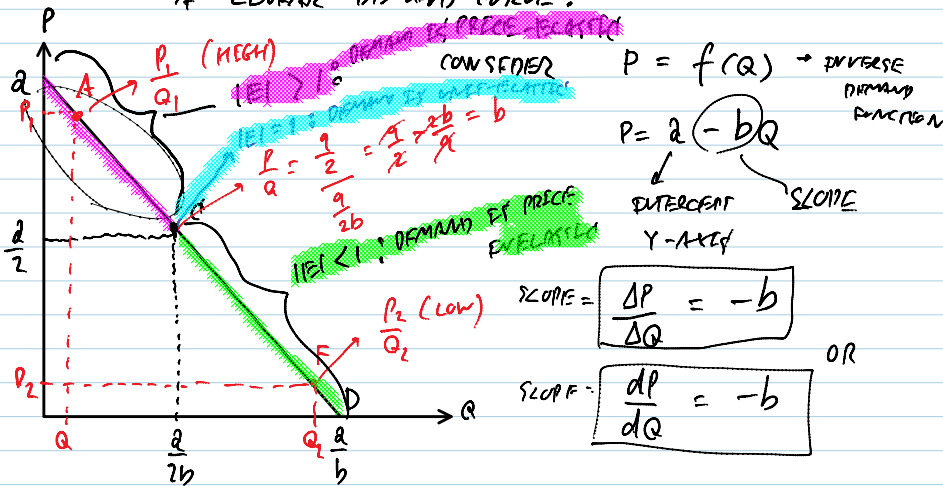 IF LINEAR DEMAND CURVE:
P
a
P1
A
P1/Q1 (HIGH)
|E| > 1: DEMAND IS PRICE-ELASTIC
CONSIDER
|E|=1: DEMAND IS UNIT-ELASTIC
P/Q = a/2 / a/2b = a/2 × 2b/a = b
a/2
|E| < 1: DEMAND IS PRICE
INELASTIC
P2/Q2 (LOW)
P2
F
D
Q
Q
a/2b
Q2
a/b
P = f(Q) → INVERSE
DEMAND
FUNCTION
P = a - bQ
INTERCEPT
Y-AXIS
SLOPE
SLOPE = ΔP/ΔQ = -b
OR
SLOPE = dP/dQ = -b